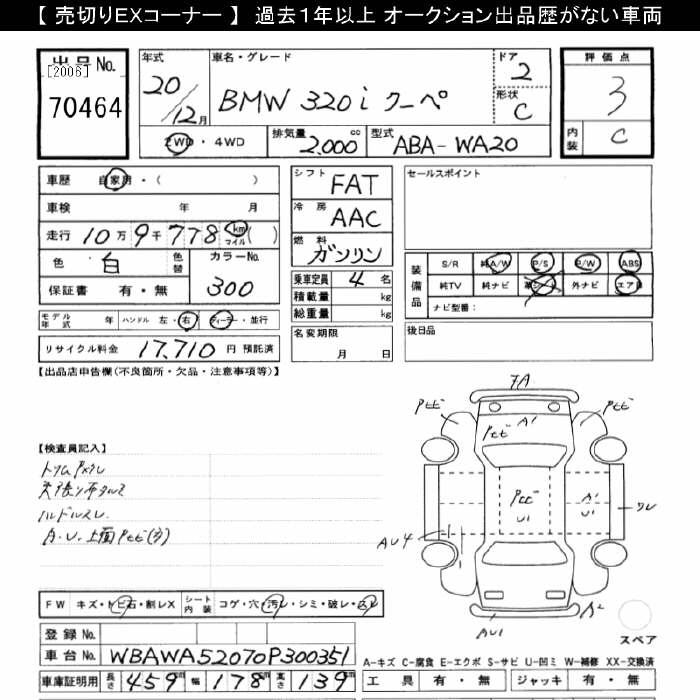 【 売切りEXコーナー 】 過去1年以上 オークション出品歴がない車両
出品 No. [2006] 70464
年式 20/12月
車名・グレード BMW 320i クーペ
ドア 2
形状 C
評価点 3
内装 C
2WD・4WD
排気量 2.000 cc
型式 ABA-WA20
車歴 自家用・( )
車検 年 月
走行 10万9千778 km マイル ( )
色 白 色替
カラーNo. 300
保証書 有・無
モデル年式 年 ハンドル 左・右 ディーラー・並行
リサイクル料金 17,710 円 預託済
シフト FAT
冷房 AAC
燃料 ガソリン
乗車定員 4 名
積載量 kg
総重量 kg
名変期限 月 日
セールスポイント
装備品 S/R 純A/W P/S P/W ABS
純TV 純ナビ 革シート 外ナビ エアB
ナビ型番: /
後日品
【出品店申告欄(不良箇所・欠品・注意事項等)】
【検査員記入】
天張り布タルミ
ハンドルスレ
A.U.上面Pヒビ(多)
FA
Pヒビ
Pヒビ
A1
Pヒビ
Pヒビ
U1
A1
U1
ワレ
AU4
AU1
A2
スペア
FW キズ・トビ石・割レX シート内装 コゲ・穴・汚レ・シミ・破レ・スレ
登録 No.
車台 No. WBAWA52070P300351
車庫証明用 長さ 459 cm 幅 178 cm 高さ 139 cm
A-キズ C-腐食 E-エクボ S-サビ U-凹ミ W-補修 XX-交換済
工具 有・無 ジャッキ 有・無